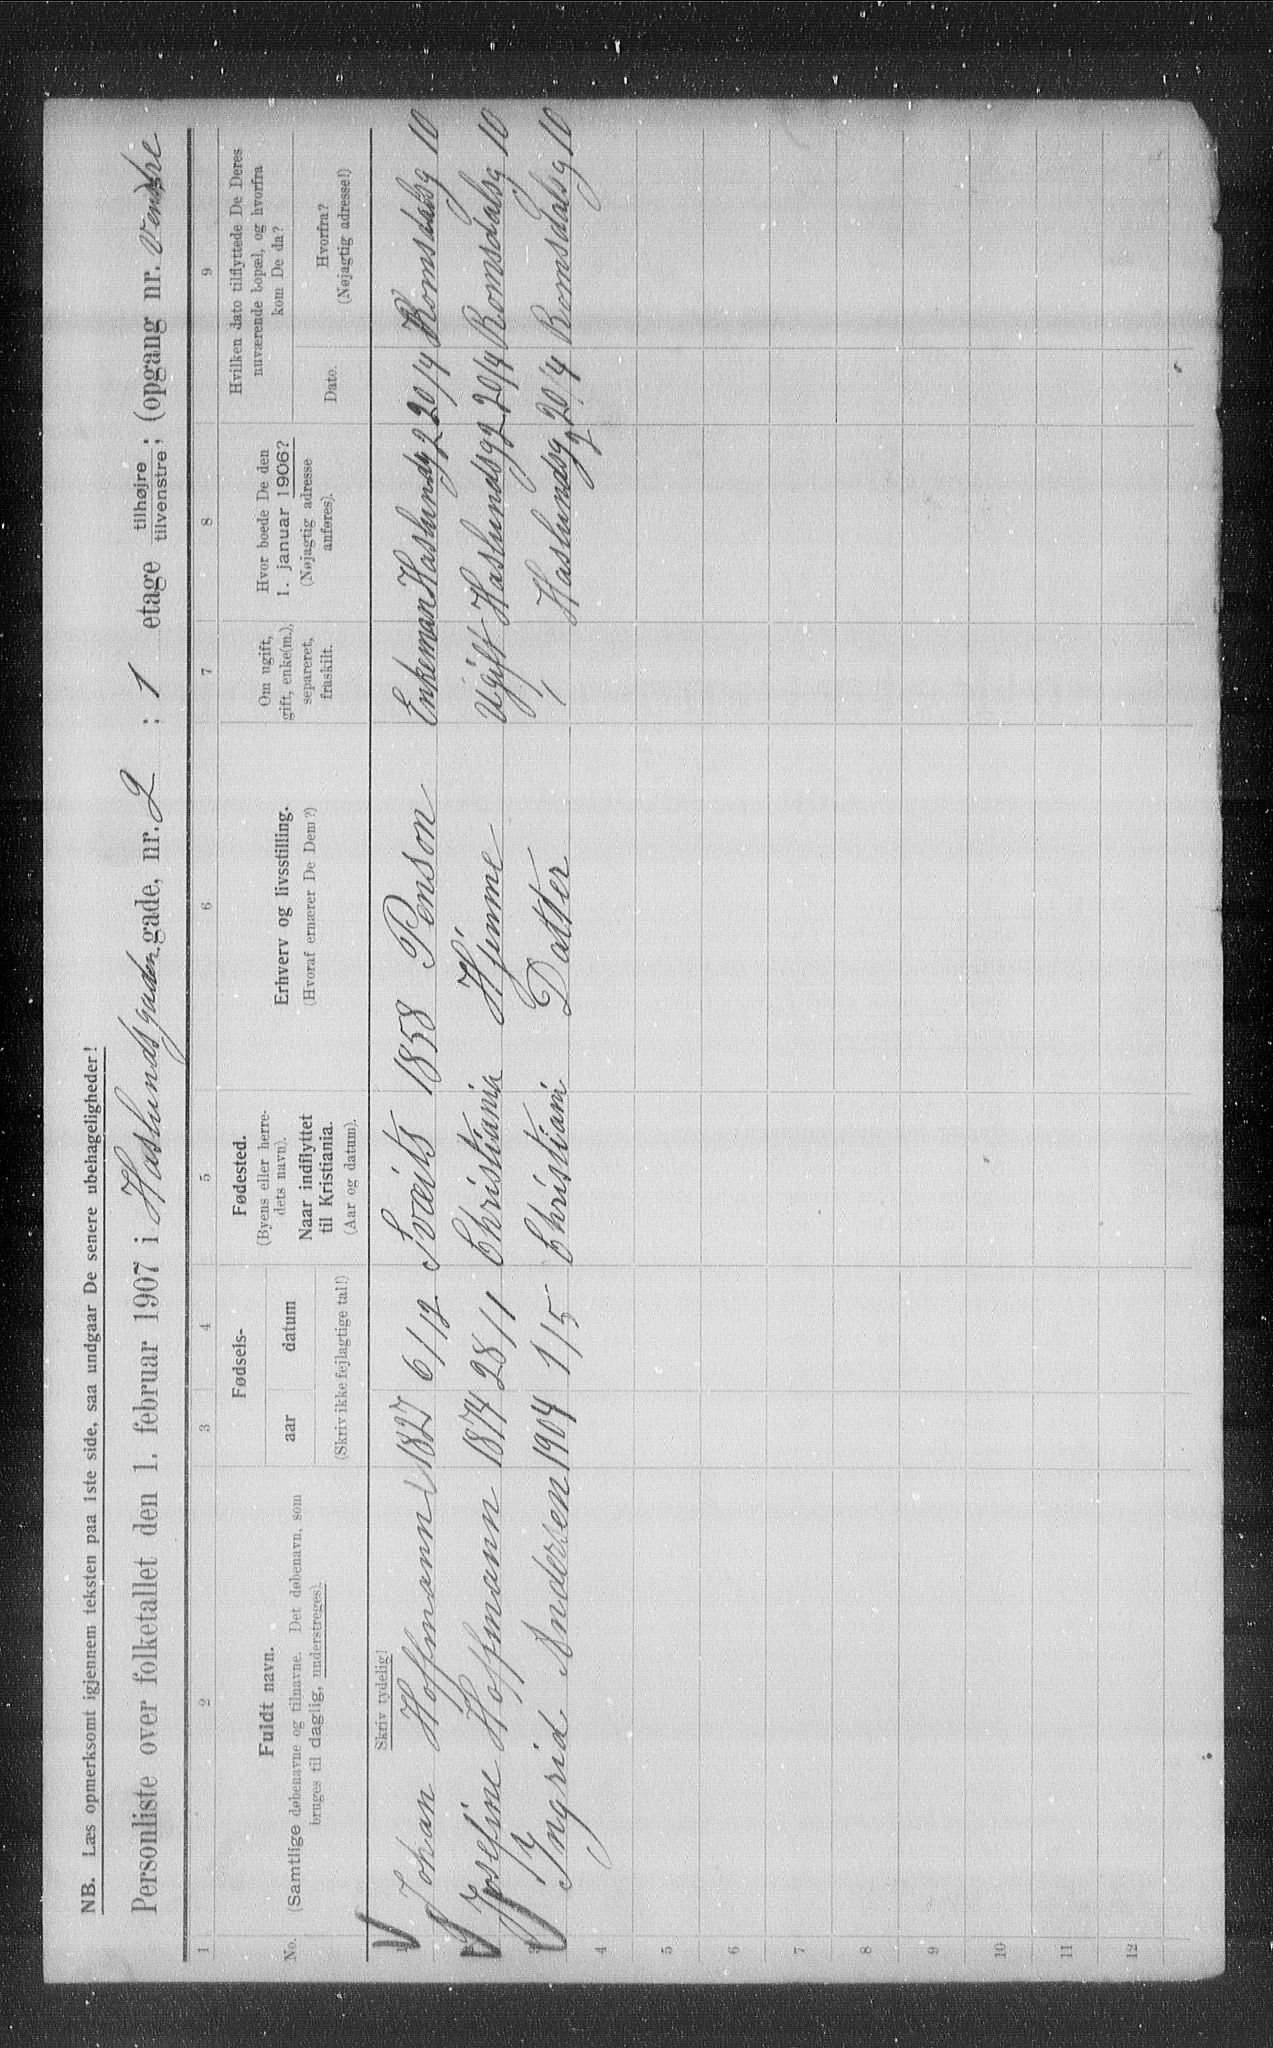 NB. Læs opmerksomt igjennem teksten paa 1ste side, saa undgaar De senere ubehageligheder!
Personliste over folketallet den 1. februar 1907 i Haslundsgaden gade, nr. 2 ; 1 etage tilhøjre tilvenstre; (opgang nr. Venstre
1 2 3 4 5 6 7 8 9
No.
Fuldt navn.
(Samtlige døbenavne og tilnavne. Det døbenavn, som
bruges til daglig, understreges).
Fødsels-
aar datum
(Skriv ikke fejlagtige tal!)
Fødested.
(Byens eller herre-
dets navn).
Naar indflyttet
til Kristiania.
(Aar og datum).
Erhverv og livsstilling.
(Hvoraf ernærer De Dem?)
Om ugift,
gift, enke(m.),
separeret,
fraskilt.
Hvor boede De den
1. januar 1906?
(Nøjagtig adresse
anføres).
Hvilken dato tilflyttede De Deres
nuværende bopæl, og hvorfra
kom De da?
Dato.
Hvorfra?
(Nøjagtig adresse!)
Skriv tydelig!
1 Johan Hoffmann 1827 6/12 Sveits 1858 Penson Enkeman Haslundg 2 20/4 Romsdalsg 10
Josefine Hoffmann 1874 28/1 Christiania Hjemme Ugift Haslundsg 2 20/4 Romsdalsg 10
3 Ingrid Andersen 1904 1/5 Christiani Datter / Haslundsg 2 20/4 Romsdalsg 10
4
5
6
7
8
9
10
11
12